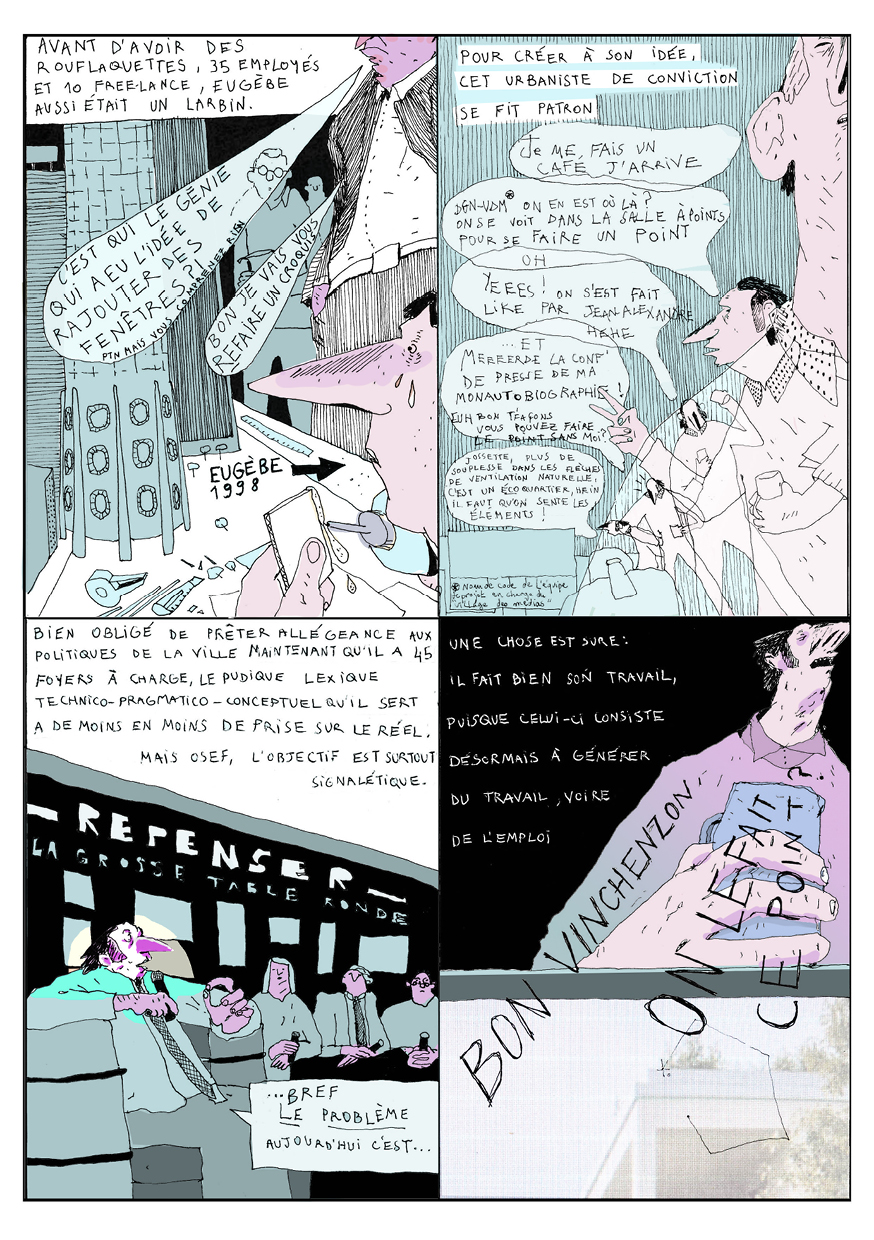 AVANT D'AVOIR DES
ROUFLAQUETTES, 35 EMPLOYÉS
ET 10 FREE-LANCE, EUGÈBE
AUSSI ÉTAIT UN LARBIN.
C'EST QUI LE GÉNIE
QUI A EU L'IDÉE DE
RAJOUTER DES
FENÊTRES?
PTN MAIS VOUS COMPRENEZ RIEN
BON JE VAIS VOUS
REFAIRE UN CROQUIS
EUGÈBE
1998
POUR CRÉER À SON IDÉE,
CET URBANISTE DE CONVICTION
SE FIT PATRON
JE ME FAIS UN
CAFÉ J'ARRIVE
DGN-VDM* ON EN EST OÙ LÀ?
ON SE VOIT DANS LA SALLE À POINTS
POUR SE FAIRE UN POINT
OH
YEEES! ON S'EST FAIT
LIKE PAR JEAN ALEXANDRE
HEHE
...ET
MEEEERDE LA CONF'
DE PRESSE DE MA
MONAUTOBIOGRAPHIE!
EUH BON TEAFONS
VOUS POUVEZ FAIRE
LE POINT SANS MOI?
JOSSETTE, PLUS DE
SOUPLESSE DANS LES FLÈCHES
DE VENTILATION NATURELLE,
C'EST UN ÉCOQUARTIER, HEIN
IL FAUT QU'ON SENTE LES
ÉLÉMENTS!
* Nom de code de l'équipe
projet en charge du
"village des médias"
BIEN OBLIGÉ DE PRÊTER ALLÉGEANCE AUX
POLITIQUES DE LA VILLE MAINTENANT QU'IL A 45
FOYERS À CHARGE, LE PUDIQUE LEXIQUE
TECHNICO-PRAGMATICO-CONCEPTUEL QU'IL SERT
A DE MOINS EN MOINS DE PRISE SUR LE RÉEL.
MAIS OSEF, L'OBJECTIF EST SURTOUT
SIGNALÉTIQUE.
- REPENSER -
LA GROSSE TABLE RONDE
...BREF
LE PROBLÈME
AUJOURD'HUI C'EST...
UNE CHOSE EST SURE:
IL FAIT BIEN SON TRAVAIL,
PUISQUE CELUI-CI CONSISTE
DÉSORMAIS À GÉNÉRER
DU TRAVAIL, VOIRE
DE L'EMPLOI
BON VINCHENZON
ON LE FAIT
CE POINT?